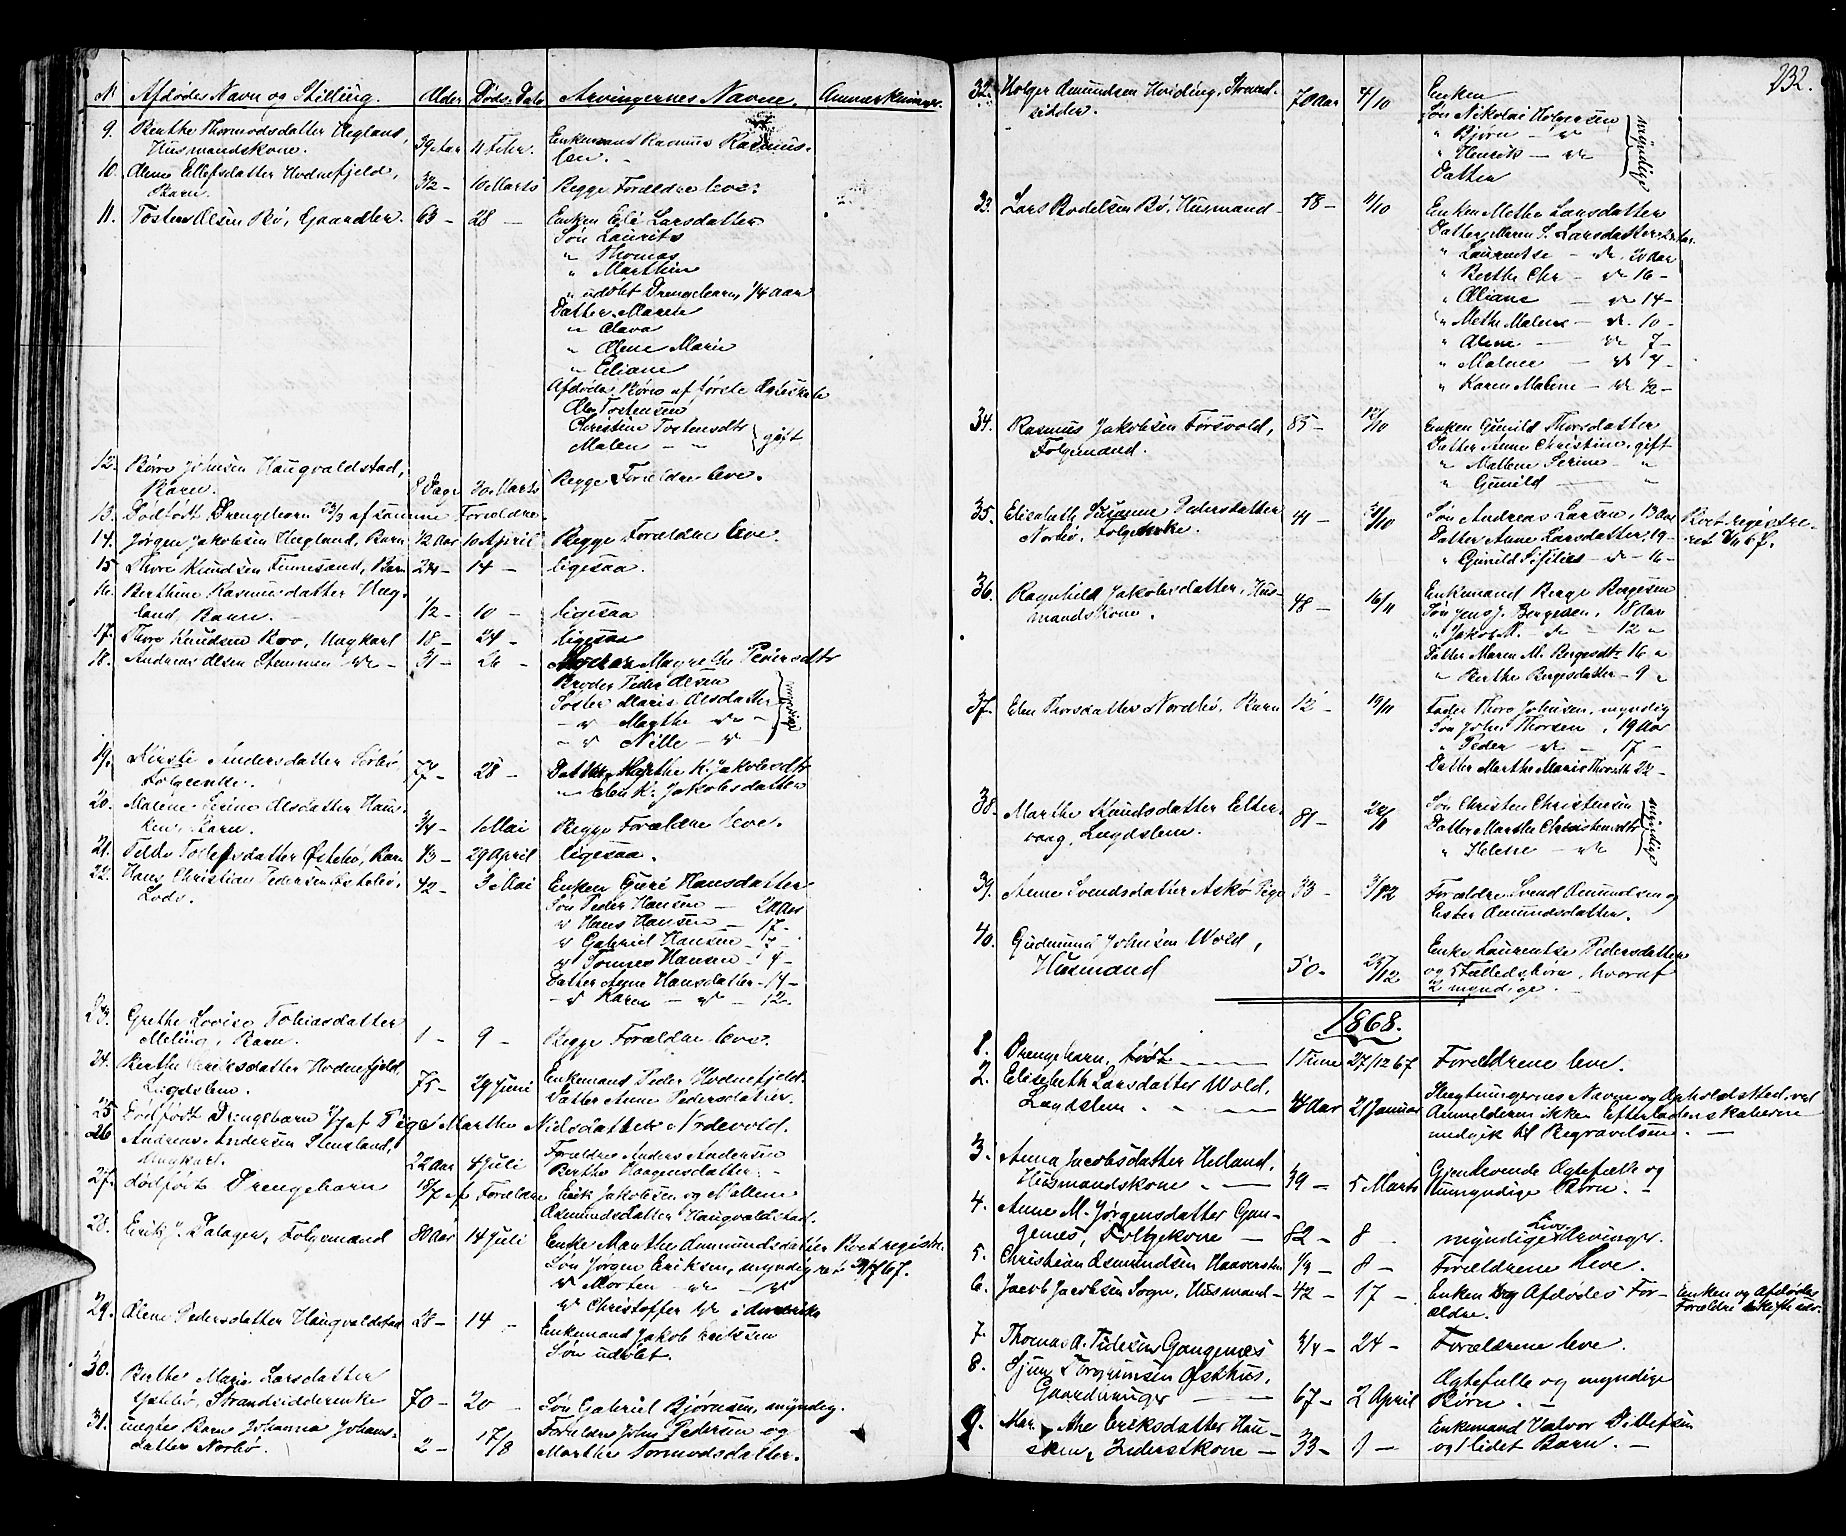 N. Afdødes Navn og Stilling. Alder Døds-Dato Arvingernes Navne. Anmærkninger.
9. Berthe Thormodsdatter Hegland, Husmandskone. 39 Aar 11 Febr. Enkemand Rasmus Rasmus-
sen.
10. Alene Ellefsdatter Hodnefjeld, Barn. 3/12 - 10 Marts Begge Forældre leve.
11. Tosten Olsen Bø, Gaardbr. 63 - 28 - Enken Eli Larsdatter
Søn Laurits
" Thomas
" Marthin
" udøbt Drengebarn, 1/4 Aar
Datter Maren
" Olava
" Olene Marie
" Eliane
Afdødes Børn af første Ægteskab
Ole Tostensen
Christine Tostensdtr } gift
Malen - "
12. Børe Johnsen Haugvaldstad, Barn. 8 Dage 20 Marts Begge Forældre leve.
13. Dødfødt Drengebarn 23/3 af samme Forældre.
14. Jørgen Jakobsen Hegland, Barn 12 Aar 10 April Begge Forældre leve.
15. Thore Knudsen Finnesand, Barn 14 - ligesaa.
16. Berthine Rasmusdatter Heg-
land, Barn. 1/2 - 10 - ligesaa
17. Thore Knudsen Bøo, Ungkarl 18 - 24 - ligesaa
18. Andreas Olsen Stemmen do - 31 - 26 - Moder Magrethe Pedersdtr
Broder Peder Olsen
Søster Maris Olsdatter
- " Magthe do -
- " Nille - " -
19. Kirsti Andersdatter Sørbø, Folgeenke. 77 - 28 - Datter Marthe K. Jakobsdtr
" Elen K. Jakobsdatter
20. Malene Serine Olsdatter Haus-
ken, Barn. 3/4 - 1 Mai Begge Forældre leve.
21. Tollefsdatter Østebø, Barn 13 - 29 April ligesaa.
22. Hans Christian Pedersen Østebø, Lods. 42 - 3 Mai Enken Guri Hansdatter
Søn Peder Hansen - 20 Aar
" Hans Hansen - 17 -
" Gabriel Hansen - 7 -
" Tønnes Hansen - 4 -
Datter Anne Hansdatter - 14 -
- " Karen - " - 12 -
23. Grethe Lovise Tobiasdatter
Meling, Barn. 1 - 9 - Begge Forældre leve.
24. Berthe Eriksdatter Hodnefjeld,
Lægdslem. 75 - 29 Juni Enkemand Peder Hodnefjeld.
Datter Anne Pedersdatter.
25. Dødfødt Drengebarn af Pige Marthe Nilsdatter Nordvold.
26. Andreas Andersen Stensland,
Ungkarl. 22 Aar 4 Juli Forældre Anders Andersen
Berthe Haagensdatter.
27. dødfødt Drengebarn 18/7 af Forældre Erik Jakobsen og Mallene
Asmundsdatter Haugvaldstad.
28. Erik J. Dalager, Folgemand 80 Aar 14 Juli Enke Marthe Amundsdatter Boet registre-
Søn Jørgen Eriksen, myndig ret 67.
" Morten - do - "
" Christoffer do i Amerika
29. Olene Pedersdatter Haugvaldstad 28 - 14 - Enkemand Jakob Eriksen
Søn udøbt.
30. Berthe Marie Larsdatter
Strandsidderenke 70 - 20 - Søn Gabriel Bjørnsen, myndig.
31. uægte Barn Johanna Johans-
datter Norbø. 2 - 17/8 Forældre John Pedersen og
Marthe Tormodsdatter.
232.
32. Holger Amundsen Hviding, Strand-
sidder. 70 Aar 4/10 Enken
Søn Nikolai Holgersen
" Bjørn - do
" Henrik - do
Datter
myndige
33. Lars Bodelsen Bø, Husmand - 58 - 11/10 Enken Methe Larsdatter
Datter Maren S. Larsdatter
" Laurentse - do. 20 Aar
" Berthe Chr - do 16 -
" Eliane - do 14 -
" Methe Malene - do. 10 -
" Alene - do 7 -
" Malene - do 4 -
" Karen Malene - do 1/2 -
34. Rasmus Jakobsen Førsvold,
Folgemand. 85 - 12/10 Enken Gunild Thorsdatter
Datter Anne Christine, gift
" Mallene Serine - "
" Gunild - "
35. Elisabeth Susanne Pedersdatter
Norbø, Folgeenke. 41 - Søn Andreas Larsen, 13 Aar Boet registre-
Datter Anne Larsdatter, 19 - ret 67.
" Gunild do - 16 -
36. Ragnhild Jakobsdatter, Hus-
mandskone. 48 - 16/11 Enkemand Berge Bergesen
Søn Jens J. Bergesen, 18 Aar
" Jakob B. - do - 12 "
Datter Maren M. Bergesdtr 16 "
" Berthe Bergesdatter - 9 "
37. Elen Thorsdatter Nordbø, Barn 12 - 19/11 Fader Thore Johnsen, myndig
Søn John Thorsen, 19 Aar
" Peder - do - 17 -
Datter Marthe Marie Thorsdtr 22 -
38. Marthe Knudsdatter Elter-
vaag, Lægdslem. 81 - Søn Christen Christensen
Datter Marthe Christensdtr
" Helene - do
myndige
39. Anne Svendsdatter Askø Pige 33 - 3/12 Forældre Svend Amundsen og
Ester Amundsdatter.
40. Gudmund Johnsen Wold,
Husmand 50 - 25/12 Enke Laurentse Pedersdatter
og 5 Fælledsbørn, hvoraf
2 myndige.
1868.
1. Drengebarn, født 1 Time 27/12 67 Forældrene leve.
2. Elisabeth Larsdatter Wold,
Lægdslem. Aar 21 Januar Slægtningernes Navne og Opholdssted, ved
Anmelderen ikke. Efterladenskaberne
medgik til Begravelsen.
3. Anna Jacobsdatter Helland,
Husmandskone. 39 - 5 Marts Gjenlevende Ægtefælle og
umyndige Børn.
4. Anne M. Jørgensdatter Gan-
genes, Folgekone - 82 - 8 - myndige Livs-Arvinger.
5. Christian Asmundsen Haaversten 1/3 - 8 - Forældrene leve.
6. Jacob Jacobsen Sogn, Husmand - 42 - 17 - Enken og Afdødes For-
ældre. Enken og Afdødes
Forældre
7. Thomas A. Gangenæs 3/4 - 24 - Forældrene leve.
8. Torgrimsen Østhus,
Gaardbruger 67 - 2 April Ægtefælle og myndige
Børn.
9. Eriksdatter Hau-
sken, Inderstkone - 33 - 1 - Enkemand Halvor Ditlefsen
og 1 lidet Barn.